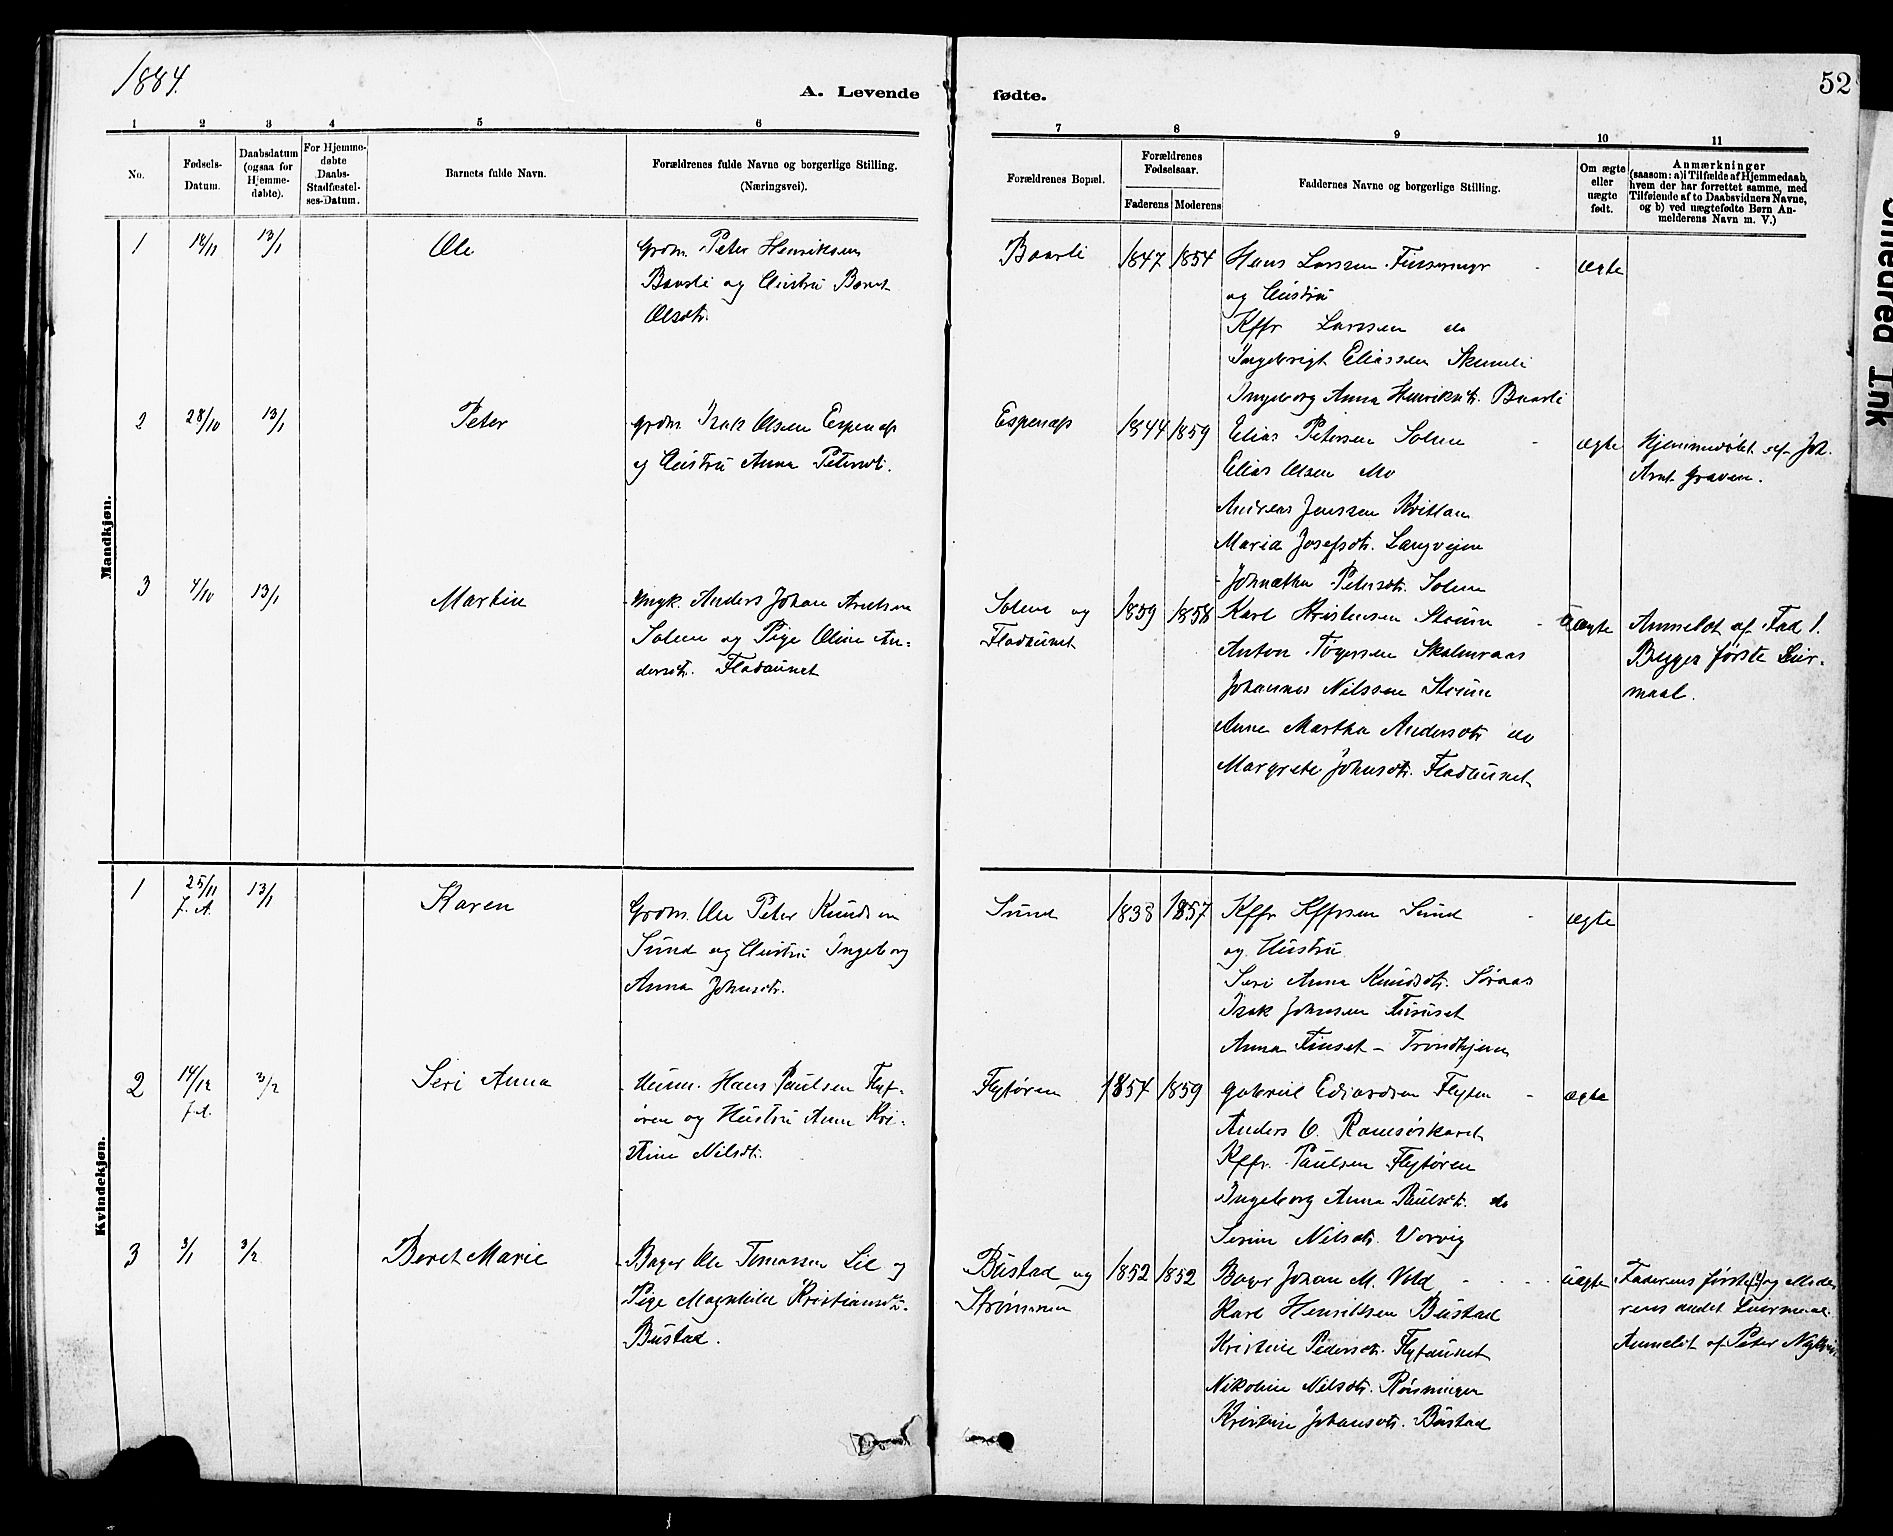 1884.
A. Levende fødte.
52
1 2 3 4 5 6 7 8 9 10 11
No.
Fødsels-
Datum.
Daabsdatum
(ogsaa for
Hjemme-
døbte).
For Hjemme-
døbte
Daabs-
Stadfæstel-
ses-Datum.
Barnets fulde Navn.
Forældrenes fulde Navne og borgerlige Stilling.
(Næringsvei).
Forældrenes Bopæl.
Forældrenes
Fødselsaar.
Faderens
Moderens
Faddernes Navne og borgerlige Stilling.
Om ægte
eller
uægte
født.
Anmærkninger
(saasom: a) i Tilfælde af Hjemmedaab,
hvem der har forrettet samme, med
Tilføiende af to Daabsvidners Navne,
og b) ved uægtefødte Børn An-
melderens Navn m. V.)
Mandkjøn.
1
13/1
Ole
Grdm. Peter Henriksen
Baarli og Hustru Beret
Olsdtr.
Baarli
1847 1854
Hans Larssen
og Hustru
Kffr Larssen do
Ingebrigt Eliassen Skumli
Ingeborg Anna Henriksdtr. Baarli
ægte
2
28/10
13/1
Peter
Grdm. Isak Olsen Espenæs
og Hustru Anna Petersdtr.
Espenæs
1844 1859
Elias Petersen Solem
Elias Olsen Mo
Andreas Jenssen
Maria Josefsdtr. Langvejen
Petersdtr. Solem
ægte
Hjemmedøbt af Joh.
Arnt Graven.
3
4/10
13/1
Martin
Ungk. Anders Johan
Solem og Pige Oline An-
dersdtr. Fladaunet
Solem og
Fladaunet
1859 1858
Karl Kristensen
Anton
Johannes Nilssen
Anne Martha Andersdtr do
Margrete Johnsdtr. Fladaunet
Uægte
Anmeldt af Fad 1.
Begges første Leier-
maal.
Kvindekjøn.
1
25/11
f. A.
13/1
Karen
Grdm. Ole Peter Knudsen
Sund og Hustru Ingeborg
Anna Johnsdtr.
Sund
1838 1857
Kffr Kffrsen Sund
og Hustru
Seri Anna Knudsdtr. Søraas
Isak Johnsen
Anna Finset – Trondhjem
ægte
2
14/12
f. A.
3/2
Seri Anna
Husm. Hans Paulsen Flyt-
øren og Hustru Anne Kri-
stine Nilsdtr.
Flytøren
1854 1859
Gabriel Edvardsen
Anders O. Ramsøskaret
Kffr. Paulsen Flytøren
Ingeborg Anna Paulsdtr. do
Nilsdtr. Vorvig
ægte
3
3/1
3/2
Beret Marie
Bager Ole Tomassen Lie og
Pige Magnhild Kristiansdtr.
Bustad.
Bustad og
Strømmen
1852 1852
Bager Johan M. Vold
Karl Henriksen Bustad
Kristine Pedersdtr. Flytaunet
Nikoline Nilsdtr. Rønningen
Kristine Johansdtr. Bustad
uægte
Faderens første (?) og Mode-
rens andet Leiermaal.
Anmeldt af Peter